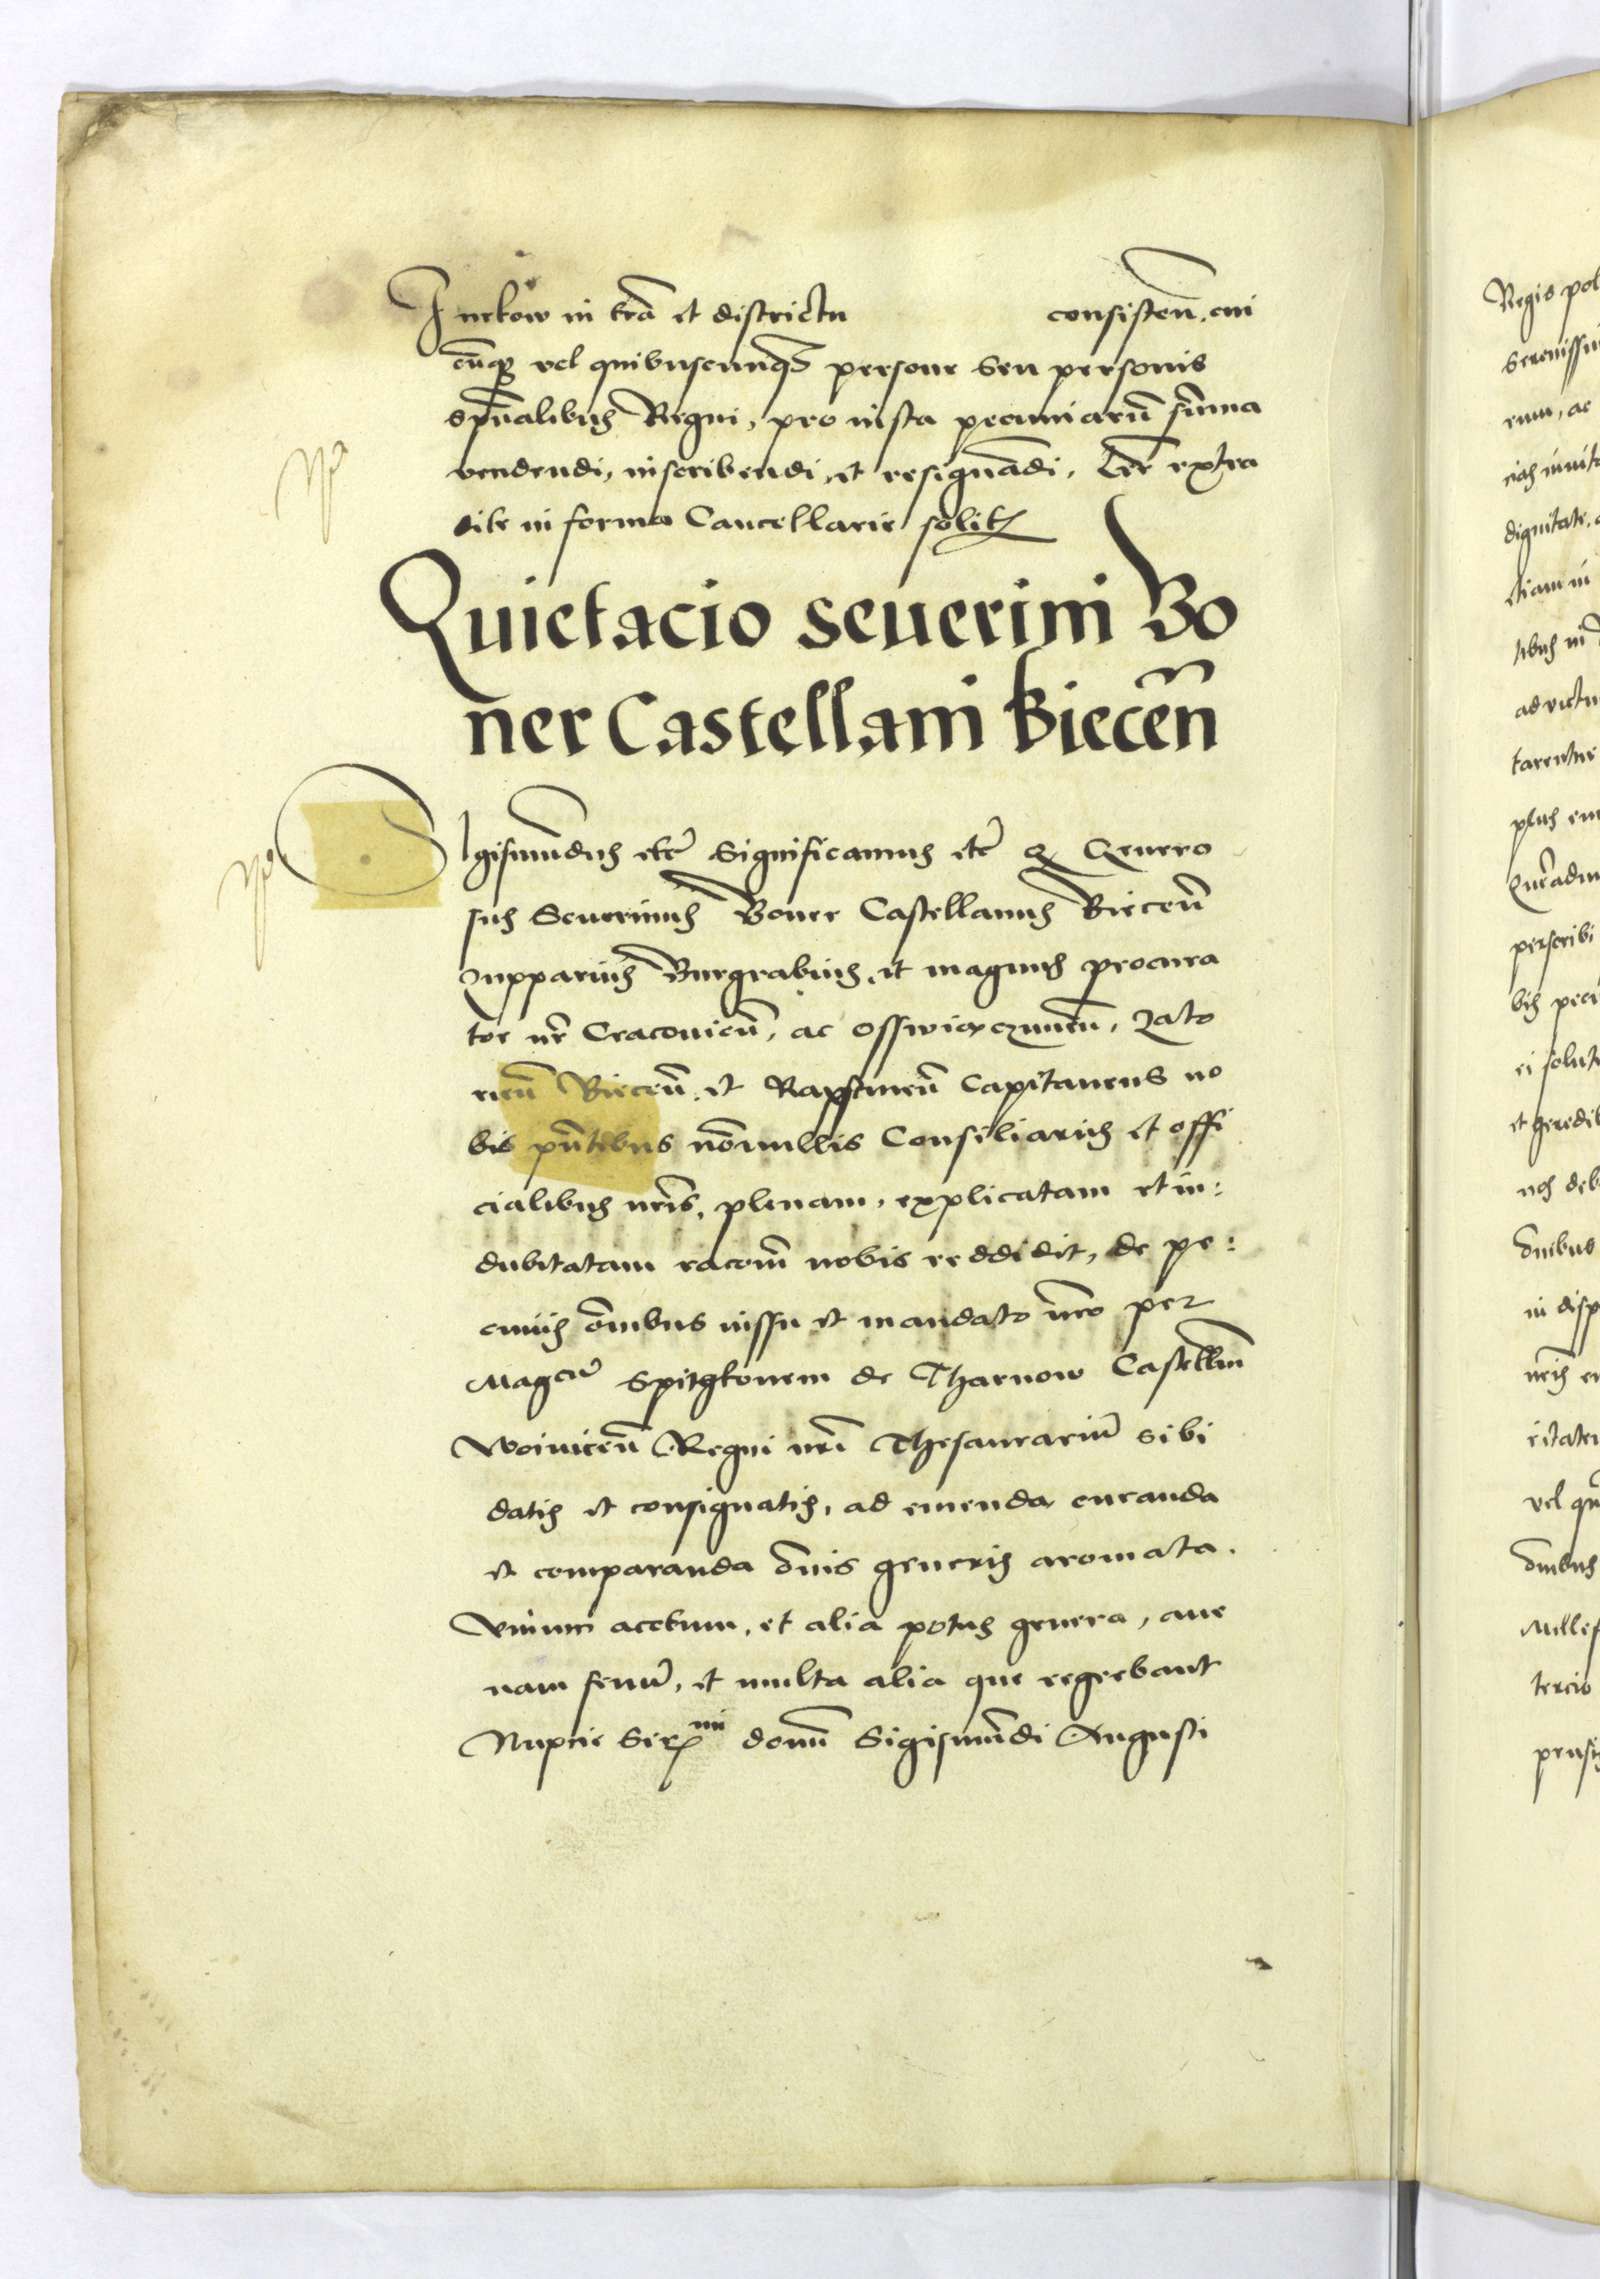 Inrkow in tra et districtu consisten. cui
cunq vel quibuscunq persone seu personis
spualibus Regni, pro iusta pecuniaru summa
vendendi, inscribendi, et resignandi. Lre extra
dite in forma Cancellarie solit
Quietacio Seuerini Bo
ner Castellani Biecen
Sigismundus etc Significamus etc q Genero
sus Seuerinus Boner Castellanus Biecen
Zupparius Burgrabius, et magnus procura
tor nr Cracovien, ac Osswiaczimen, Zato
rien Biecen, et Rapstinen Capitaneus no
bis pntibus nonnullis Consiliariis et offi
cialibus nris, plenam, explicatam et in:
dubitatam racom nobis reddidit, de pe:
cuniis omibus iussu et mandato nro per
Magcu Spitgkonem de Tharnow Castellm
Woinicen Regni nri Thesaurariu sibi
datis et consignatis, ad emenda curanda
et comparanda omis generis aromata.
Vinum acetum, et alia potus genera, aue
nam fenu, et multa alia que regerebant
Nupcie Ser mi domi Sigismundi Augusti
Regis pol
Serenissi
rum, ac
dignitate.
etiam in
tibus in
ad victu
tarentur
plus em
perscribi
bis pecu
ei solut
nos deb
omibus
in disp
vel qu
omibus
Millef
tercio